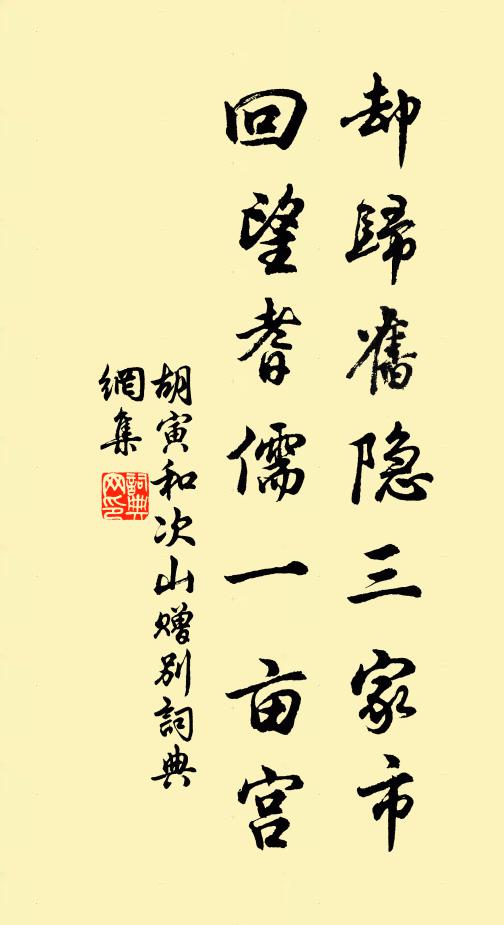 却歸舊隐三家市
回望耆儒一亩宫
胡寅和次山赠别詞典
網集
詞典网印